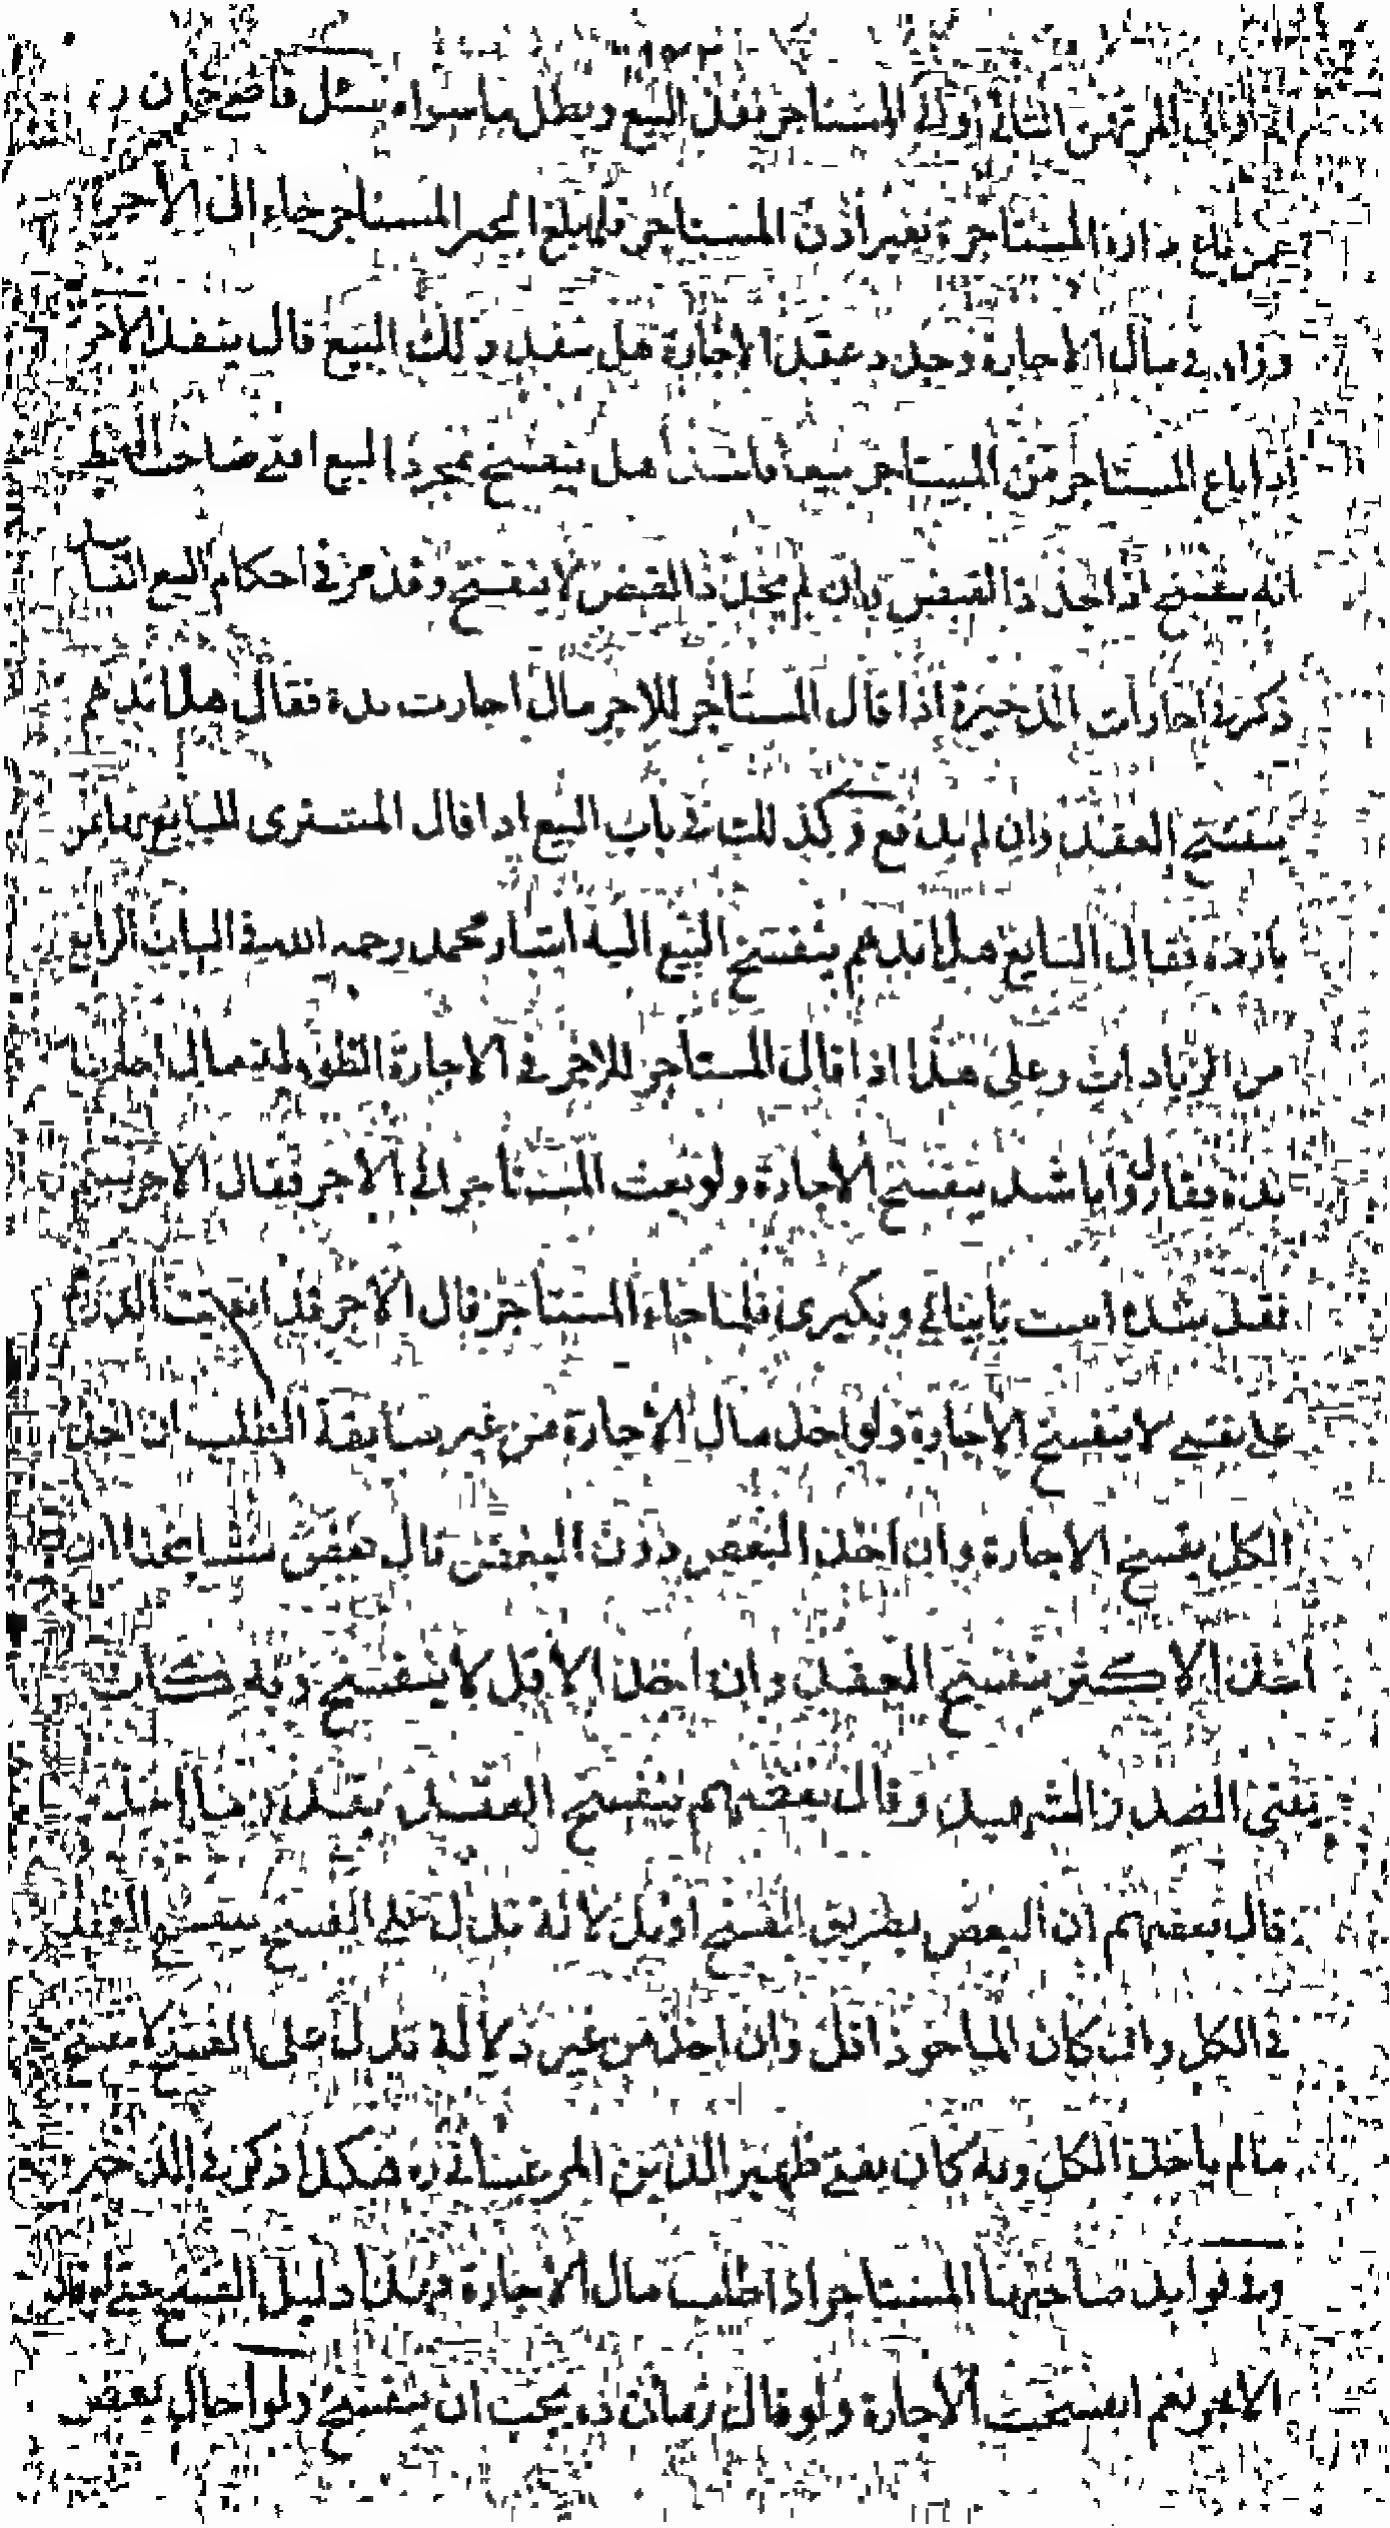 المرتهن الثاني او المستاجر نفذ البيع وبطل ما سواه سئل قاضي خان ره
عمن باع داره المستاجرة بغير اذن المستاجر فلما بلغ الخبر المستاجر جاء الى الآجر
وزاد في مال الاجارة وجدد عقد الاجارة هل ينفذ ذلك البيع قال ينفذ
اذا باع المستاجر من المستاجر بيعا فاسدا هل ينفسخ بمجرد البيع افتى صاحب المحيط
انه ينفسخ اذا وان لم القبض لا ينفسخ وقد مر في احكام البيع الفاسد
ذكر في اجارات الذخيرة اذا قال المستاجر للآجر مال اجارت بده فقال هلا بدهم
ينفسخ العقد وان لم يدفع وكذلك في باب البيع اذا قال المشترى للبايع
بازده فقال البايع هلا بدهم ينفسخ البيع اليه اشار محمد رحمه الله في الباب الرابع
من الزيادات وعلى هذا اذا قال المستاجر للآجر في الاجارة الطويلة مال اجارت
بده فقال روا باشد ينفسخ الاجارة ولو بعث المستاجر الى الآجر فقال الآجر
نقد شده است بيائى وبكيرى فلما جاء المستاجر قال الآجر قد
لا ينفسخ الاجارة ولو اخذ مال الاجارة من غير سابقة الطلب ان اخذ
الكل ينفسخ الاجارة وان اخذ البعض دون البعض قال بعض مشايخنا ان
اخذ الاكثر ينفسخ العقد وان اخذ الاقل لا ينفسخ وبه كان
يفتى الصدر الشهيد وقال بعضهم ينفسخ العقد بقدر ما اخذ
قال بعضهم ان البعض بطريق الفسخ او بدلالة تدل على الفسخ ينفسخ العقد
في الكل وان كان الماخوذ اقل وان اخذ من غير دلالة تدل على الفسخ لا ينفسخ
ما لم ياخذ الكل وبه كان يفتي ظهير الدين المرغيناني ره هكذا ذكر في الذخيرة
وفي فوايد صاحبها المستاجر اذا طلب مال الاجارة فهذا دليل الفسخ حتى لو قال
الآجر نعم انفسخت الاجارة ولو قال زمان ده يجب ان ينفسخ ولو احال بعض